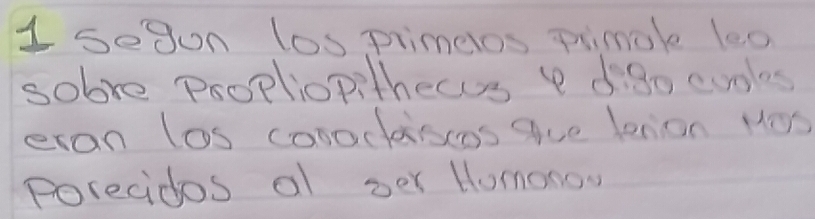 1 Segun los primeros primate lea
sobre Propliopithecus e diga cuales
eran los caracteriscas que tenian Mas
Parecidos al ser Humano